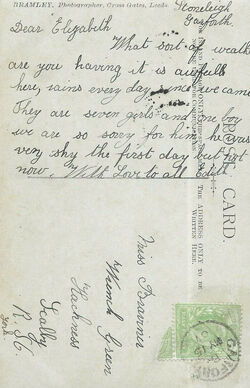 BRAMLEY, Photographer, Cross Gates, Leeds.
Stoneleigh
Garforth
Dear Elizabeth
What sort of weath
are you having it is awfull
here, rains every day since we came
They are seven girls and one boy
we are so sorry for him he was
very shy the first day but not
now, With Love to all Edith
POST CARD.
THE ADDRESS ONLY TO BE
WRITTEN HERE.
Miss
Wrench Green
Hackness
Scalby
R.S.O.
Yorks